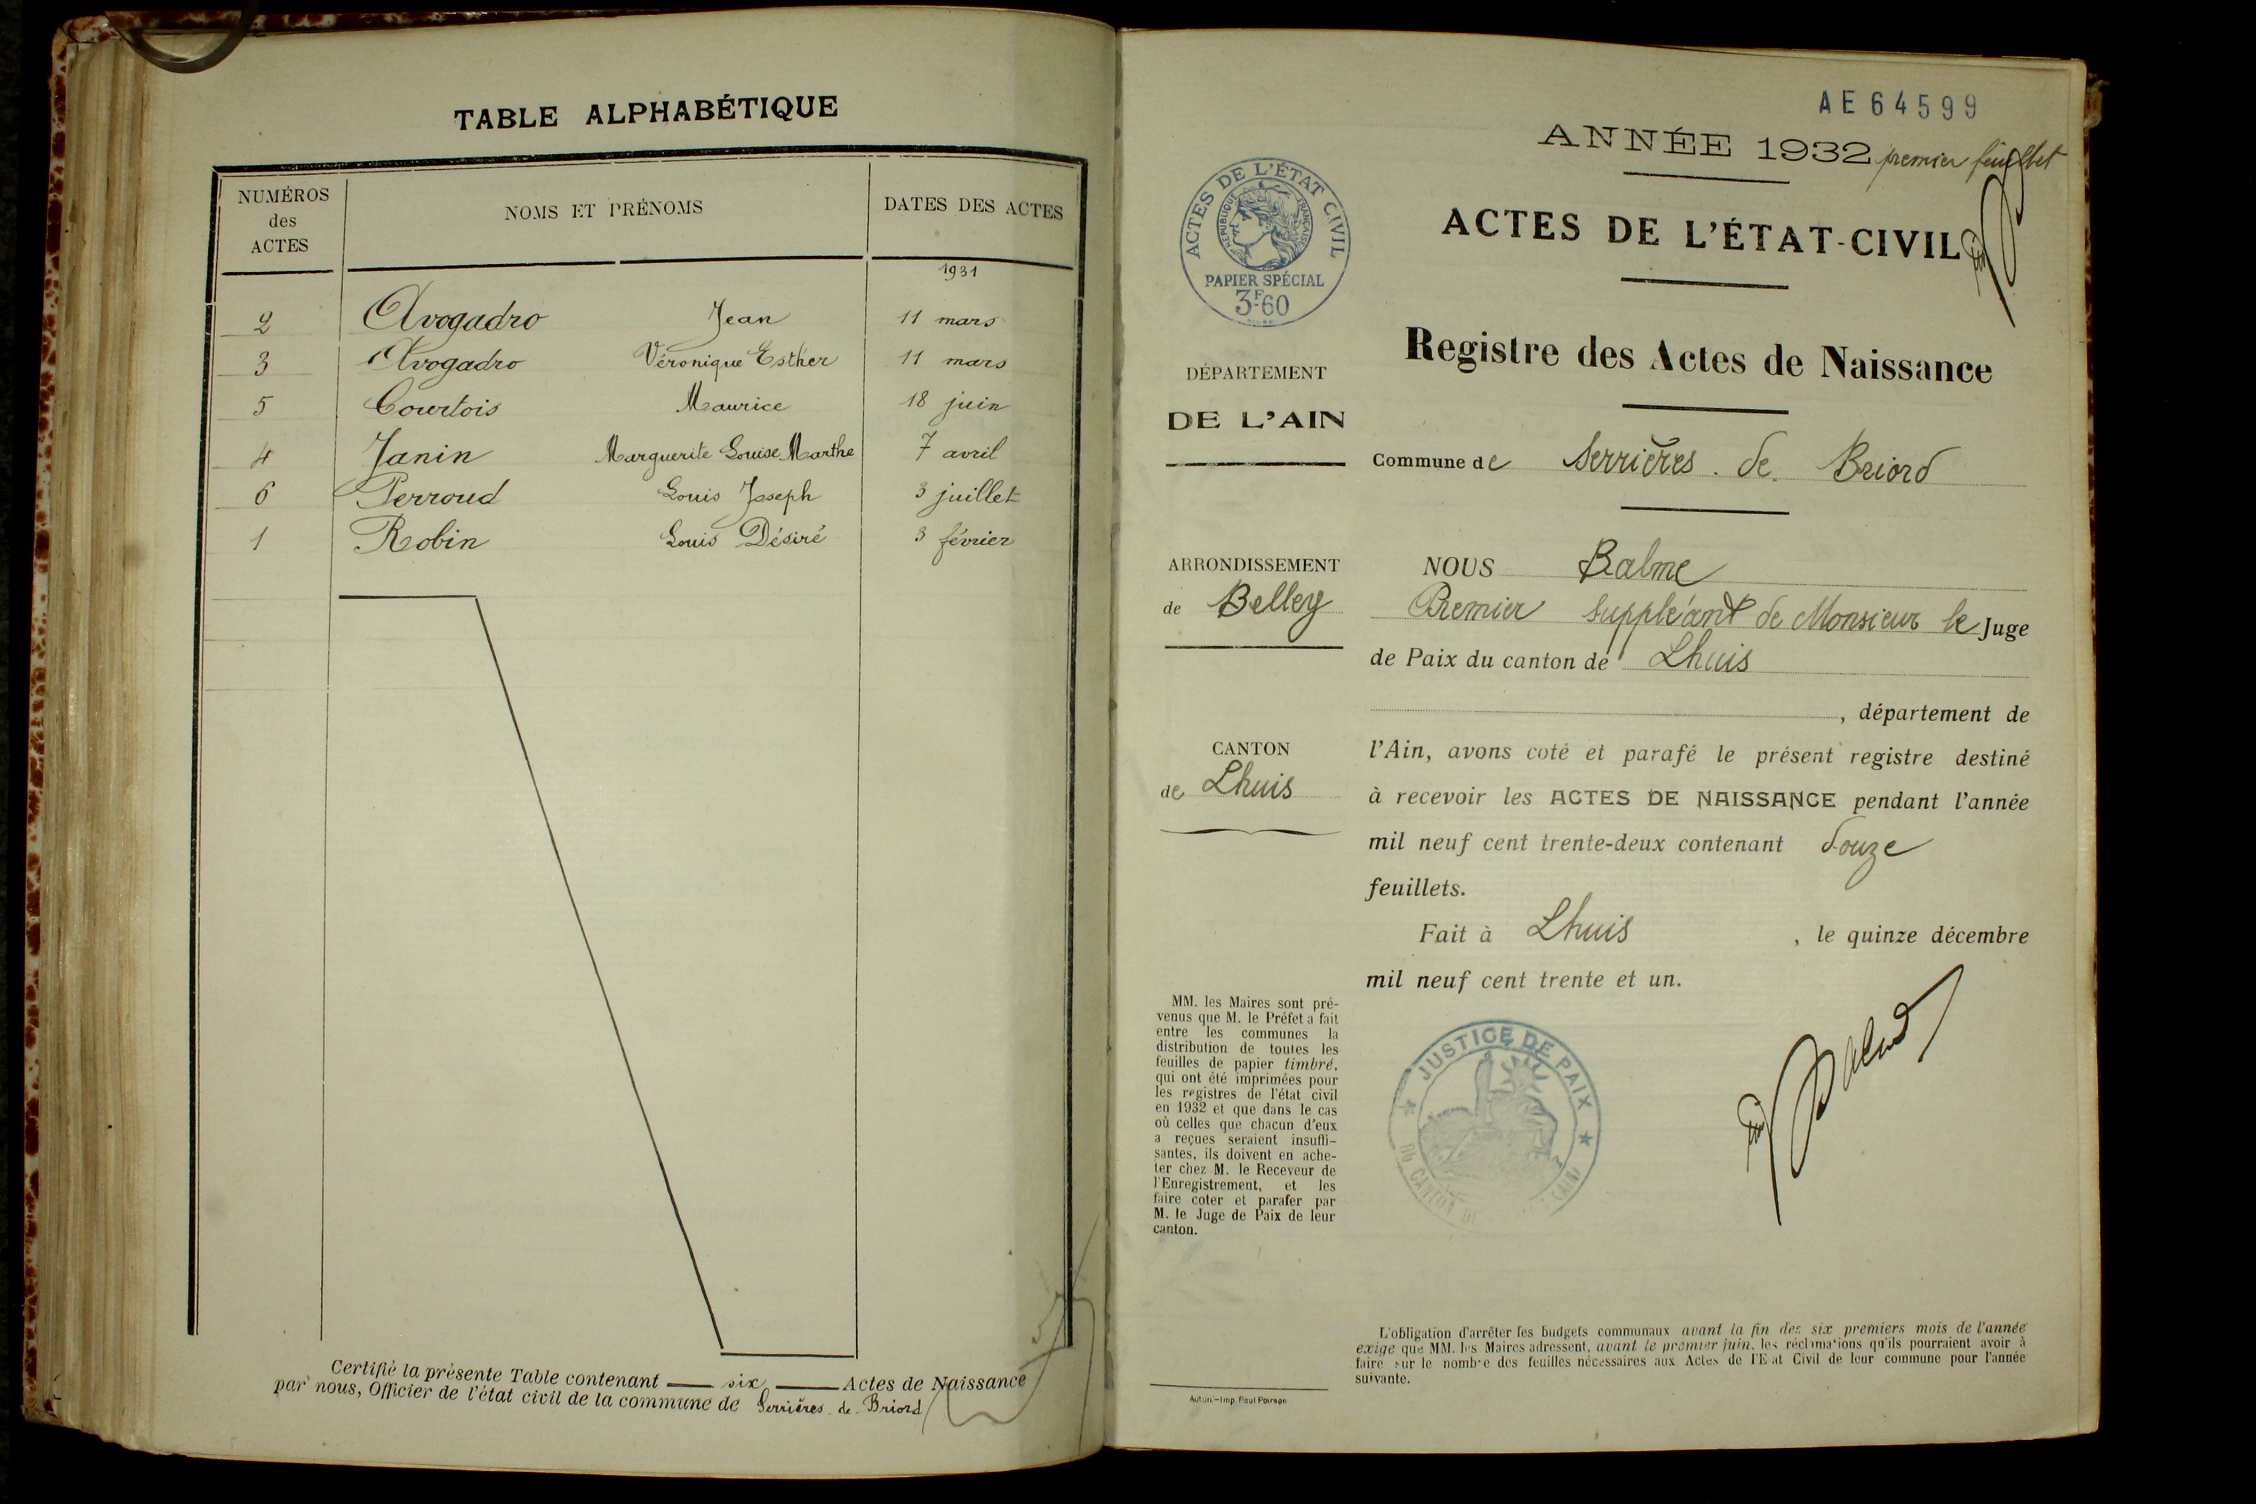 TABLE ALPHABÉTIQUE
NUMÉROS des ACTES NOMS ET PRÉNOMS DATES DES ACTES
1931
2 Avogadro Jean 11 mars
3 Avogadro Véronique Esther 11 mars
5 Courtois Maurice 18 juin
4 Janin Marguerite Louise Marthe 7 avril
6 Perroud Louis Joseph 3 juillet
1 Robin Louis Désiré 3 février
Certifié la présente Table contenant six Actes de Naissance
par nous, Officier de l'état civil de la commune de Serrières de Briord
AE64599
ANNÉE 1932 premier feuillet
ACTES DE L'ÉTAT CIVIL
RÉPUBLIQUE FRANÇAISE
PAPIER SPÉCIAL
3F60
ACTES DE L'ÉTAT-CIVIL
Registre des Actes de Naissance
DÉPARTEMENT
DE L'AIN
Commune de Serrières de Briord
ARRONDISSEMENT
de Belley
CANTON
de Lhuis
NOUS Balme
Premier suppléant de Monsieur le Juge
de Paix du canton de Lhuis
, département de
l'Ain, avons coté et parafé le présent registre destiné
à recevoir les ACTES DE NAISSANCE pendant l'année
mil neuf cent trente-deux contenant douze
feuillets.
Fait à Lhuis , le quinze décembre
mil neuf cent trente et un.
MM. les Maires sont pré-
venus que M. le Préfet a fait
entre les communes la
distribution de toutes les
feuilles de papier timbré,
qui ont été imprimées pour
les registres de l'état civil
en 1932 et que dans le cas
où celles que chacun d'eux
a reçues seraient insuffi-
santes, ils doivent en ache-
ter chez M. le Receveur de
l'Enregistrement, et les
faire coter et parafer par
M. le Juge de Paix de leur
canton.
JUSTICE DE PAIX
DU CANTON DE
L'obligation d'arrêter les budgets communaux avant la fin des six premiers mois de l'année
exige que MM. les Maires adressent, avant le premier juin, les réclamations qu'ils pourraient avoir à
faire sur le nombre des feuilles nécessaires aux Actes de l'Etat Civil de leur commune pour l'année
suivante.
Autun.—Imp. Paul